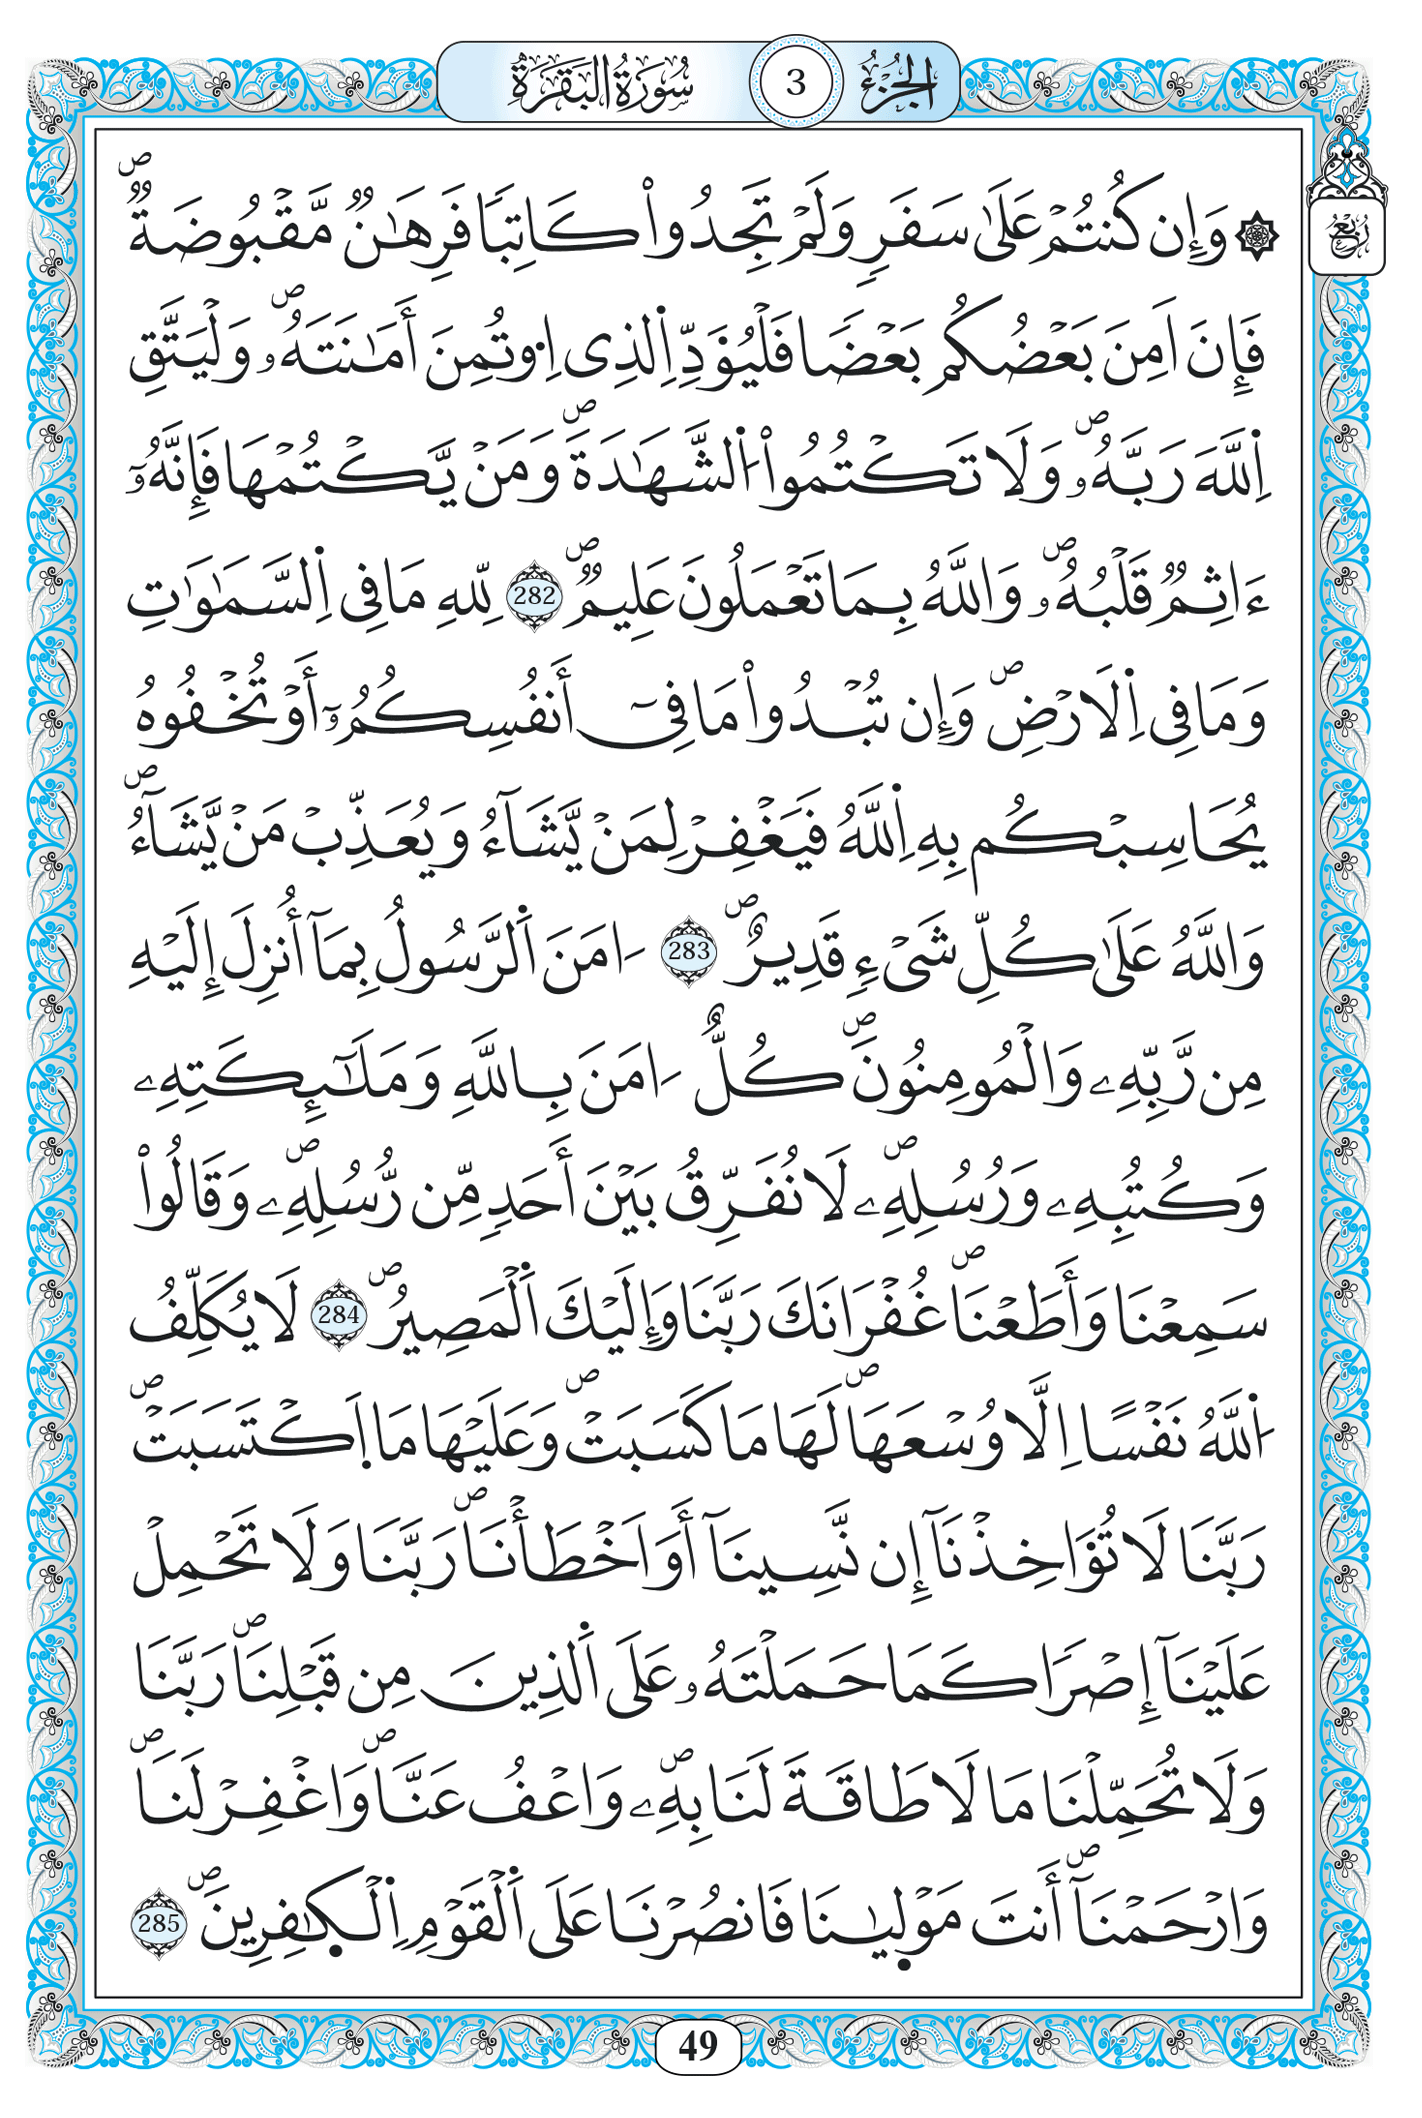 الجزء 3 سورة البقرة
ربع
۞ وَإِن كُنتُمْ عَلَىٰ سَفَرٍ وَلَمْ تَجِدُواْ كَاتِبًا فَرِهَٰنٌ مَّقْبُوضَةٌ ۖ
فَإِنَ اَمِنَ بَعْضُكُم بَعْضًا فَلْيُؤَدِّ اِ۬لذِى اِ۟وتُمِنَ أَمَٰنَتَهُۥ ۖ وَلْيَتَّقِ
اِ۬للَّهَ رَبَّهُۥ ۖ وَلَا تَكْتُمُواْ اُ۬لشَّهَٰدَةَ ۖ وَمَنْ يَّكْتُمْهَا فَإِنَّهُۥٓ
ءَاثِمٌ قَلْبُهُۥ ۖ وَاللَّهُ بِمَا تَعْمَلُونَ عَلِيمٌ ۖ 282 لِّلهِ مَا فِى اِ۬لسَّمَٰوَٰتِ
وَمَا فِى اِ۬لَارْضِ ۖ وَإِن تُبْدُواْ مَا فِىٓ أَنفُسِكُمُۥٓ أَوْ تُخْفُوهُ
يُحَاسِبْكُم بِهِ اِ۬للَّهُ فَيَغْفِرْ لِمَنْ يَّشَآءُ وَيُعَذِّبْ مَنْ يَّشَآءُ ۖ
وَاللَّهُ عَلَىٰ كُلِّ شَىْءٍ قَدِيرٌ ۖ 283 ءَامَنَ اَ۬لرَّسُولُ بِمَآ أُنزِلَ إِلَيْهِ
مِن رَّبِّهِۦ وَالْمُومِنُونَ ۖ كُلٌّ ءَامَنَ بِاللَّهِ وَمَلَٰٓئِكَتِهِۦ
وَكُتُبِهِۦ وَرُسُلِهِۦ ۖ لَا نُفَرِّقُ بَيْنَ أَحَدٍ مِّن رُّسُلِهِۦ ۖ وَقَالُواْ
سَمِعْنَا وَأَطَعْنَا ۖ غُفْرَانَكَ رَبَّنَا وَإِلَيْكَ اَ۬لْمَصِيرُ ۖ 284 لَا يُكَلِّفُ
اُ۬للَّهُ نَفْسًا اِلَّا وُسْعَهَا ۖ لَهَا مَا كَسَبَتْ ۖ وَعَلَيْهَا مَا اَ۪كْتَسَبَتْ ۖ
رَبَّنَا لَا تُؤَاخِذْنَآ إِن نَّسِينَآ أَوَ اَخْطَأْنَا ۖ رَبَّنَا وَلَا تَحْمِلْ
عَلَيْنَآ إِصْرًا كَمَا حَمَلْتَهُۥ عَلَى اَ۬لذِينَ مِن قَبْلِنَا ۖ رَبَّنَا
وَلَا تُحَمِّلْنَا مَا لَا طَاقَةَ لَنَا بِهِۦ ۖ وَاعْفُ عَنَّا ۖ وَاغْفِرْ لَنَا ۖ
وَارْحَمْنَآ ۖ أَنتَ مَوْل۪يٰنَا فَانصُرْنَا عَلَى اَ۬لْقَوْمِ اِ۬لْكٰ۪فِرِينَ ۖ 285
49